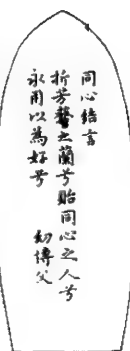 同心結言
折芳馨之蘭兮貽同心之人兮
永用以為好兮
幼博父